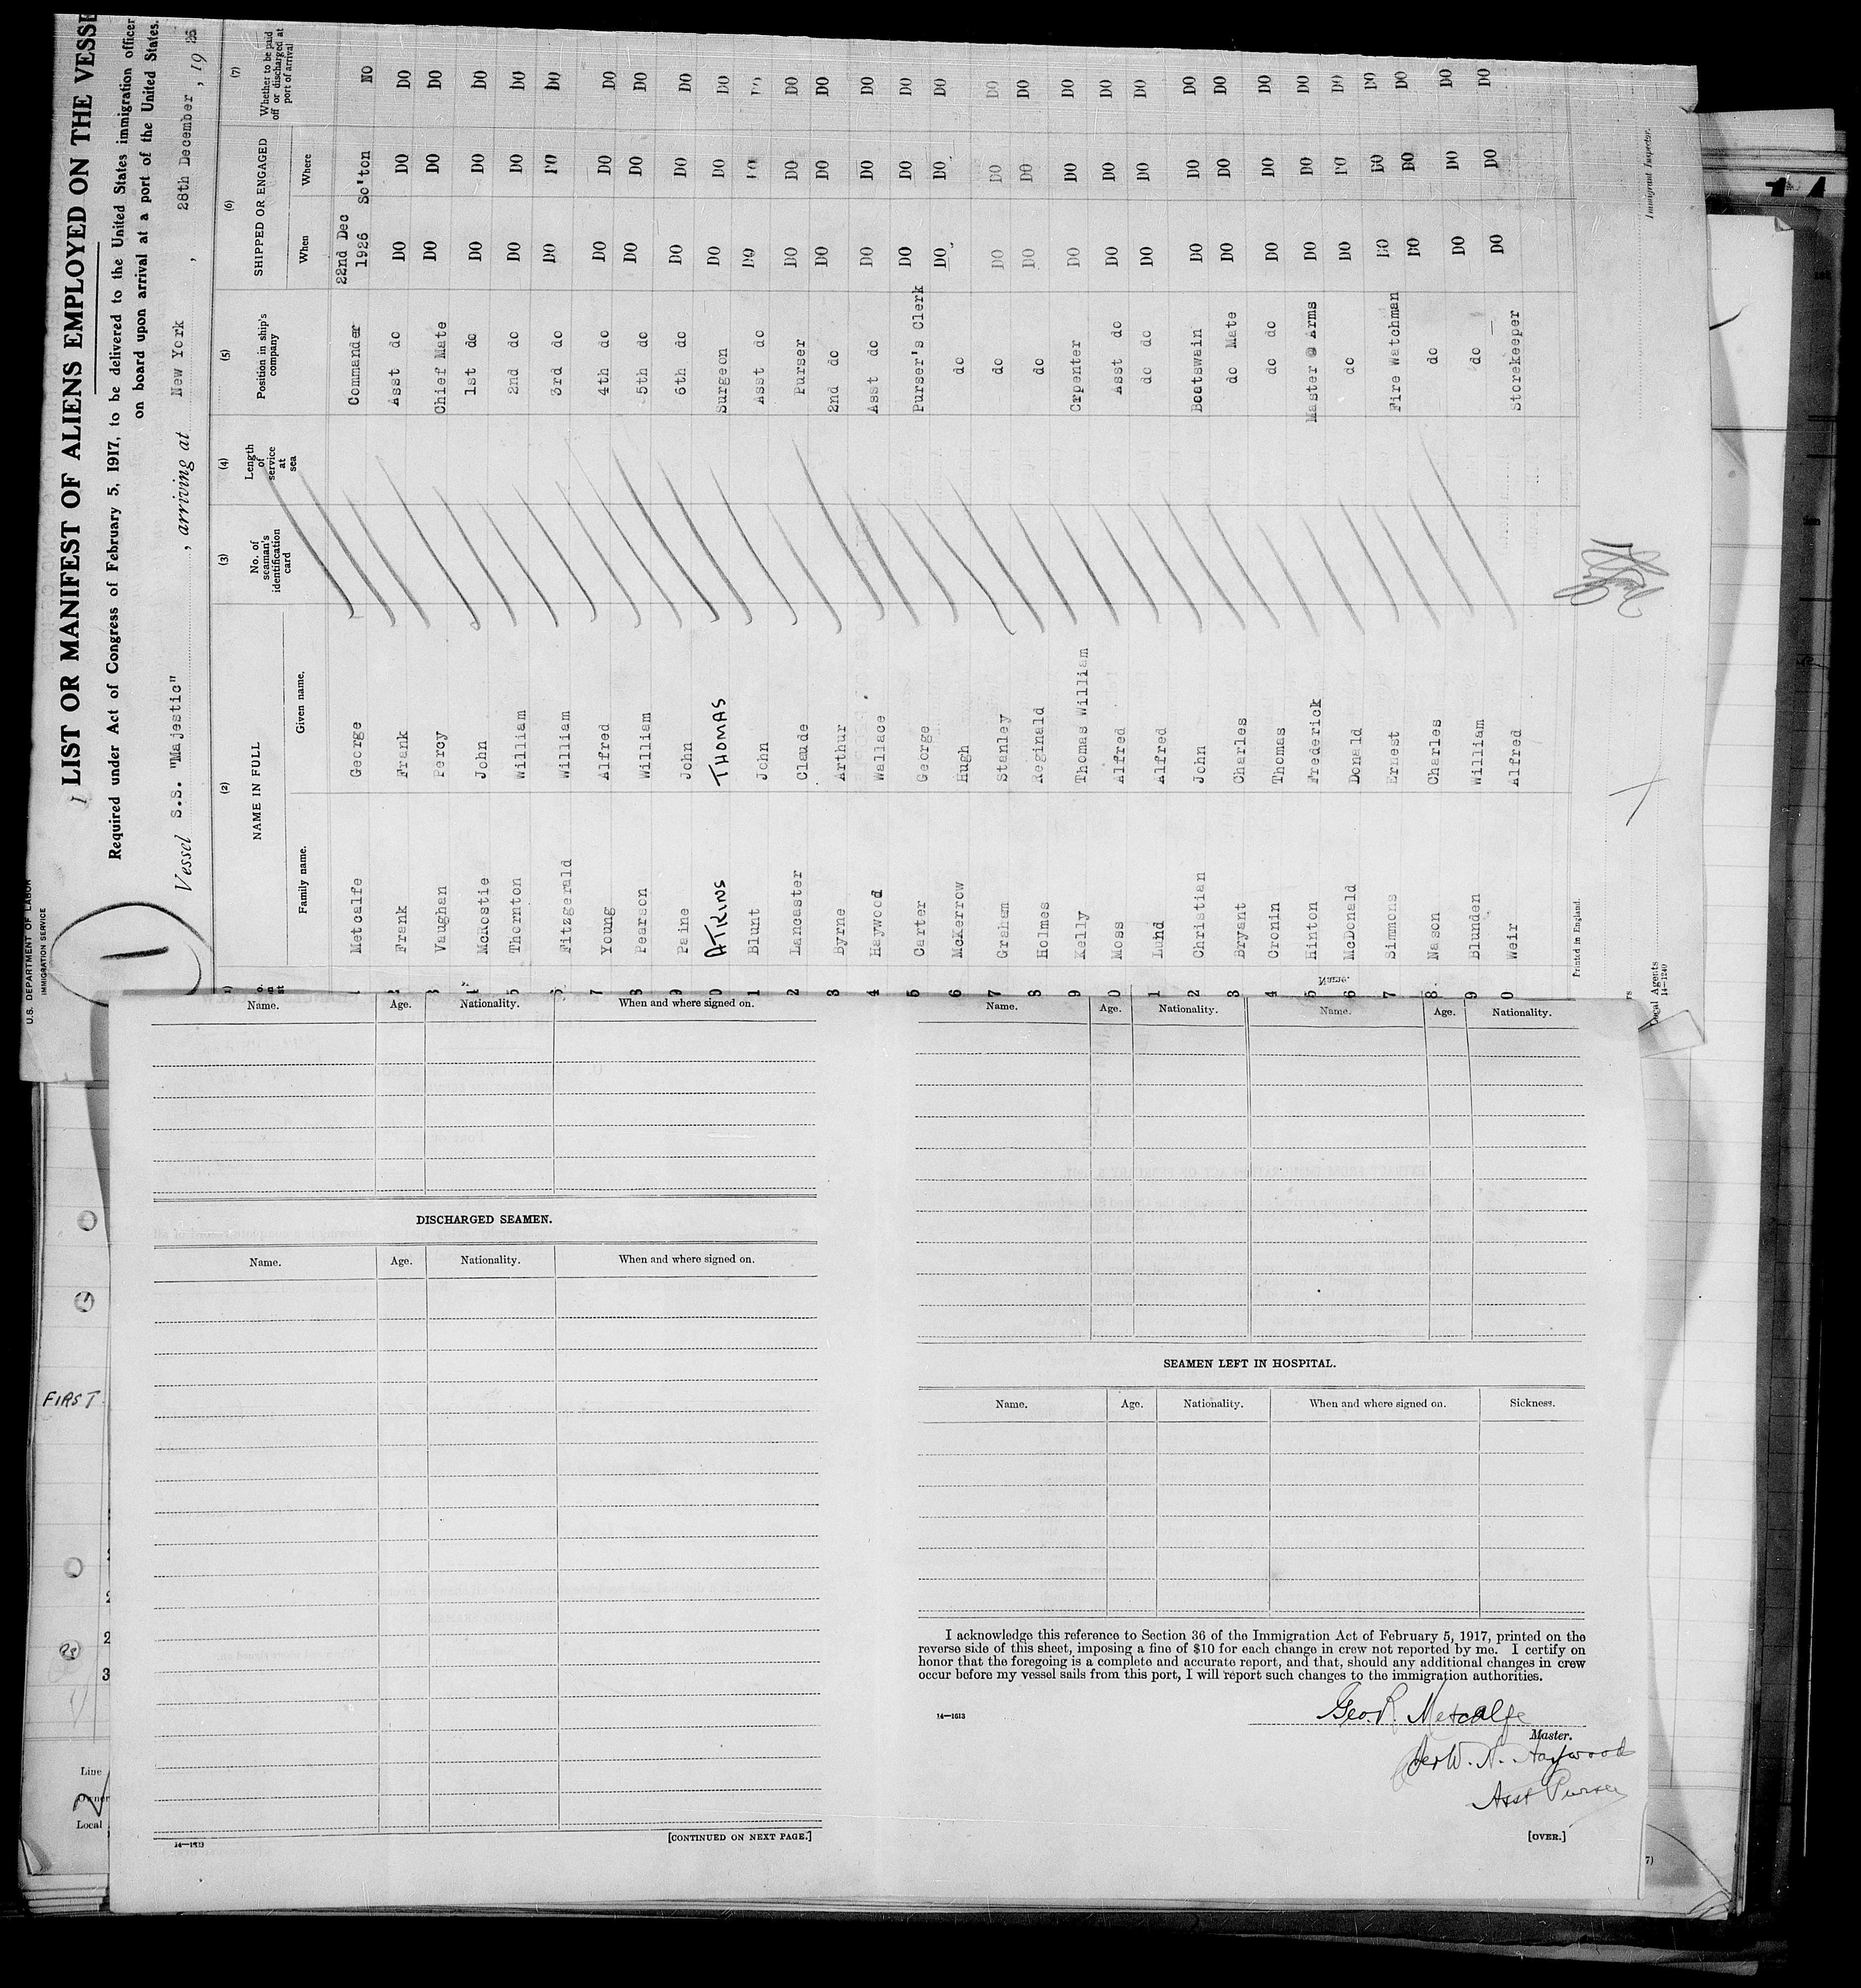 U.S. DEPARTMENT OF LABOR
IMMIGRATION SERVICE
1
1 LIST OR MANIFEST OF ALIENS EMPLOYED ON THE VESSE
Required under Act of Congress of February 5, 1917, to be delivered to the United States immigration officer
on board upon arrival at a port of the United States.
Vessel S.S. "Majestic" , arriving at New York , 28th December , 19 26
(2) (3) (4) (5) (6) (7)
NAME IN FULL No. of seaman's identification card Length of service at sea Position in ship's company SHIPPED OR ENGAGED Whether to be paid off or discharged at port of arrival
Family name. Given name. When Where
22nd Dec
1 Metcalfe George Commander 1926 So'ton NO
2 Frank Frank Asst do DO DO DO
3 Vaughan Percy Chief Mate DO DO DO
4 McRostie John 1st do DO DO DO
5 Thornton William 2nd do DO DO DO
6 Fitzgerald William 3rd do DO DO DO
7 Young Alfred 4th do DO DO DO
8 Pearson William 5th do DO DO DO
9 Paine John 6th do DO DO DO
0 ATKINS THOMAS Surgeon DO DO DO
1 Blunt John Asst do DO DO DO
2 Lancaster Claude Purser DO DO DO
3 Byrne Arthur 2nd do DO DO DO
4 Haywood Wallace Asst do DO DO DO
5 Carter George Purser's Clerk DO DO DO
6 McKerrow Hugh do DO DO DO
7 Graham Stanley do DO DO DO
8 Holmes Reginald do DO DO DO
9 Kelly Thomas William Crpenter DO DO DO
0 Moss Alfred Asst do DO DO DO
1 Lund Alfred do do DO DO DO
2 Christian John Boatswain DO DO DO
3 Bryant Charles do Mate DO DO DO
4 Cronin Thomas do do DO DO DO
5 Hinton Frederick Master @ Arms DO DO DO
6 McDonald Donald do DO DO DO
7 Simmons Ernest Fire Watchman DO DO DO
8 Nason Charles do DO DO DO
9 Blunden William do DO DO DO
0 Weir Alfred Storekeeper DO DO DO
Printed in England.
Immigrant Inspector.
Local Agents
14-1240
Name. Age. Nationality. When and where signed on.
DISCHARGED SEAMEN.
Name. Age. Nationality. When and where signed on.
14—1613
[CONTINUED ON NEXT PAGE.]
Name. Age. Nationality. Name. Age. Nationality.
SEAMEN LEFT IN HOSPITAL.
Name. Age. Nationality. When and where signed on. Sickness.
I acknowledge this reference to Section 36 of the Immigration Act of February 5, 1917, printed on the
reverse side of this sheet, imposing a fine of $10 for each change in crew not reported by me. I certify on
honor that the foregoing is a complete and accurate report, and that, should any additional changes in crew
occur before my vessel sails from this port, I will report such changes to the immigration authorities.
14—1613
Geo. R. Metcalfe
Master.
Per W. N. Haywood
Asst Purser
[OVER.]
FIRST
2
3
Line
Owner
Local
2